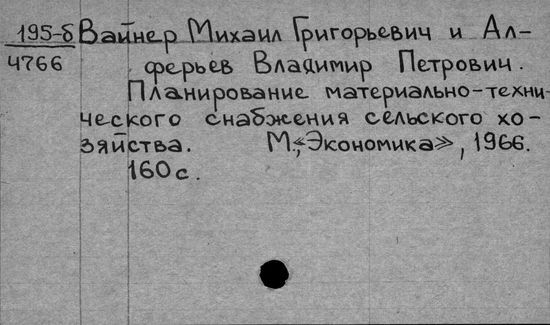 195-б Вайнер Михаил Григорьевич и Ал-
4766 ферьев Владимир Петрович.
Планирование материально-техни-
ческого снабжения сельского хо-
зяйства. М., «Экономика», 1966.
160 с.